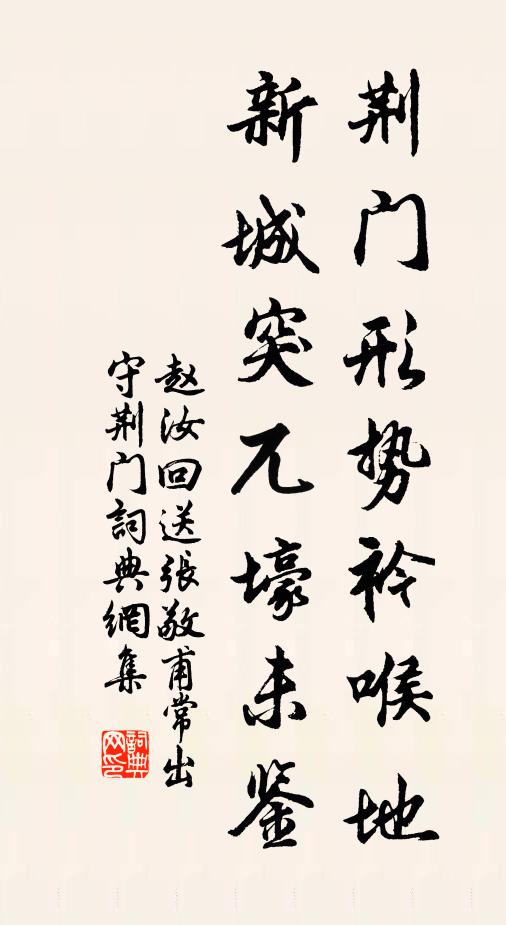 荆门形势衿喉地
新城突兀壕未鉴
赵汝回送张敬甫常出
守荆门詞典網集
詞典网印